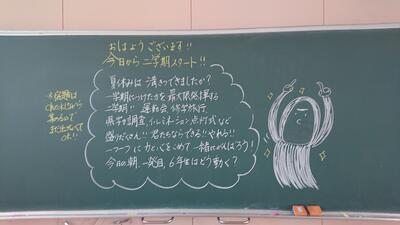 おはようございます!!
今日から二学期スタート!!
夏休みは満きつできましたか?
一学期につけた力を最大限発揮する
二学期!! 運動会、修学旅行、
県学習調査、イルミネーション点灯式など
盛りだくさん!! 君たちならできる!!やれる!!
一つ一つに力と心をこめて一緒にがんばろう!
今日の朝、一発目、6年生はどう動く?
*宿題は
集めるので
まだ出さなくて
OK!!